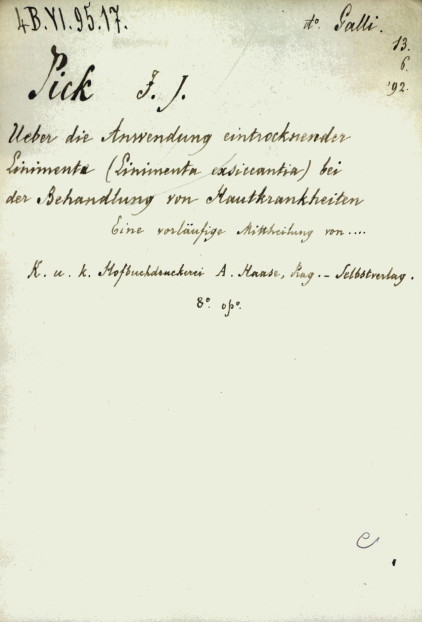 4B.VI.95.17.
do. Galli.
13.
6.
'92.
Pick F. J.
Ueber die Anwendung eintrocknender
Linimenta (Linimenta exsiccantia) bei
der Behandlung von Hautkrankheiten
Eine vorläufige Mittheilung von....
K. u. k. Hofbuchdruckerei A. Haase, Prag. - Selbstverlag.
8o. opo.
e